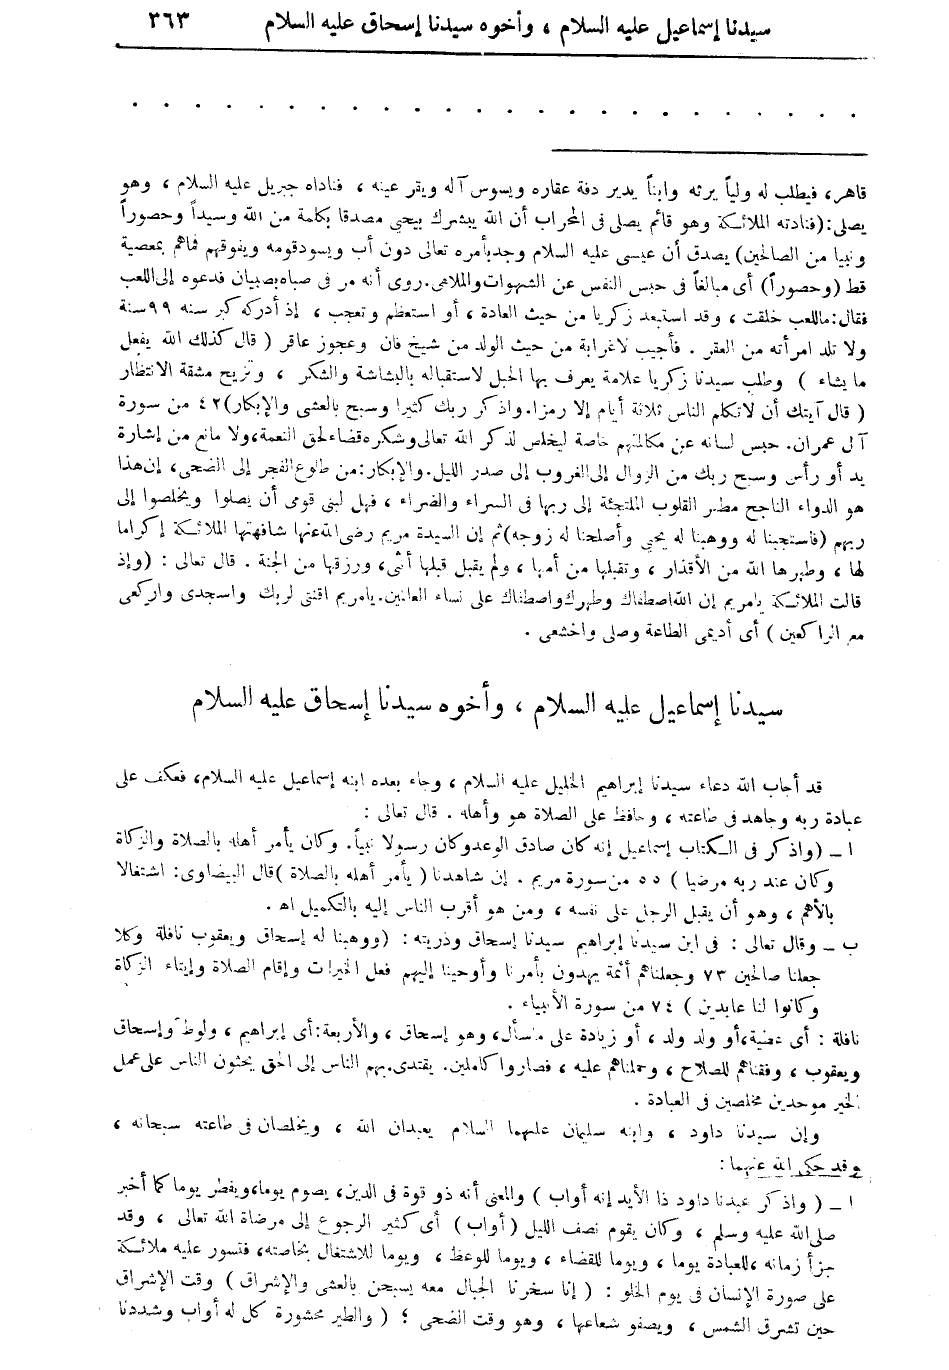 سيدنا إسماعيل عليه السلام ، وأخوه سيدنا إسحاق عليه السلام ٣٦٣
قاهر، فيطلب له ولياً يرثه وابناً يدير دفة عقاره ويسوس آله ويقر عينه ، فناداه جبريل عليه السلام ، وهو
يصلى: (فنادته الملائكة وهو قائم يصلى فى المحراب أن الله يبشرك بيحيى مصدقا بكلمة من الله وسيداً وحصوراً
ونبيا من الصالحين) يصدق أن عيسى عليه السلام وجد بأمره تعالى دون أب ويسود قومه ويفوقهم فماهم بمعصية
قط (وحصوراً) أى مبالغاً فى حبس النفس عن الشهوات والملاهى. روى أنه مر فى صباه بصبيان فدعوه إلى اللعب
فقال: ماللعب خلقت ، وقد استبعد زكريا من حيث العادة ، أو استعظم وتعجب ، إذ أدركه كبر سنه ٩٩ سنة
ولا تلد امرأته من العقر . فأجيب لاغرابة من حيث الولد من شيخ فان وعجوز عاقر ( قال كذلك الله يفعل
ما يشاء ) وطلب سيدنا زكريا علامة يعرف بها الحبل لاستقباله بالبشاشة والشكر ، وتزيح مشقة الانتظار
( قال آيتك أن لاتكلم الناس ثلاثة أيام إلا رمزا. واذكر ربك كثيرا وسبح بالعشى والإبكار) ٤٢ من سورة
آل عمران. حبس لسانه عن مكالمتهم خاصة ليخلص لذكر الله تعالى وشكره قضاء لحق النعمة، ولا مانع من إشارة
يد أو رأس وسبح ربك من الزوال إلى الغروب إلى صدر الليل. والإبكار: من طلوع الفجر إلى الضحى، إن هذا
هو الدواء الناجح مطهر القلوب الملتجئة إلى ربها فى السراء والضراء ، فهل لبنى قومى أن يصلوا ويخلصوا إلى
ربهم (فاستجبنا له ووهبنا له يحيى وأصلحنا له زوجه) ثم إن السيدة مريم رضى الله عنها شافهتها الملائكة إكراما
لها ، وطهرها الله من الأقذار ، وتقبلها من أمها ، ولم يقبل قبلها أنثى، ورزقها من الجنة . قال تعالى : (وإذ
قالت الملائكة يامريم إن الله اصطفاك وطهرك واصطفاك على نساء العالمين. يامريم اقنتى لربك واسجدى واركعى
مع الراكعين ) أى أديمى الطاعة وصلى واخشعى .
سيدنا إسماعيل عليه السلام ، وأخوه سيدنا إسحاق عليه السلام
قد أجاب الله دعاء سيدنا إبراهيم الخليل عليه السلام ، وجاء بعده ابنه إسماعيل عليه السلام، فعكف على
عبادة ربه وجاهد فى طاعته ، وحافظ على الصلاة هو وأهله . قال تعالى :
ا ــ (واذكر فى الكتاب إسماعيل إنه كان صادق الوعد وكان رسولا نبياً. وكان يأمر أهله بالصلاة والزكاة
وكان عند ربه مرضيا ) ٥٥ من سورة مريم . إن شاهدنا ( يأمر أهله بالصلاة ) قال البيضاوى: اشتغالا
بالأهم ، وهو أن يقبل الرجل على نفسه ، ومن هو أقرب الناس إليه بالتكميل اه .
ب ــ وقال تعالى : فى ابن سيدنا إبراهيم سيدنا إسحاق وذريته : (ووهبنا له إسحاق ويعقوب نافلة وكلا
جعلنا صالحين ٧٣ وجعلناهم أئمة يهدون بأمرنا وأوحينا إليهم فعل الخيرات وإقام الصلاة وإيتاء الزكاة
وكانوا لنا عابدين ) ٧٤ من سورة الأنبياء .
نافلة : أى عطية، أو ولد ولد ، أو زيادة على ماسأل، وهو إسحاق ، والأربعة: أى إبراهيم ، ولوط وإسحاق
ويعقوب ، وفقناهم للصلاح ، وحملناهم عليه ، فصاروا كاملين. يقتدى بهم الناس إلى الحق يحثون الناس على عمل
الخير موحدين مخلصين فى العبادة .
وإن سيدنا داود ، وابنه سليمان عليهما السلام يعبدان الله ، ويخلصان فى طاعته سبحانه ،
وقد حكى الله عنهما :
ا ــ ( واذكر عبدنا داود ذا الأيد إنه أواب ) والمعنى أنه ذو قوة فى الدين، يصوم يوما، ويفطر يوما كما أخبر
صلى الله عليه وسلم ، وكان يقوم نصف الليل (أواب) أى كثير الرجوع إلى مرضاة الله تعالى ، وقد
جزأ زمانه ، للعبادة يوما ، ويوما للقضاء ، ويوما للوعظ ، ويوما للاشتغال بخاصته، فتسور عليه ملائكة
على صورة الإنسان فى يوم الخلو : ( إنا سخرنا الجبال معه يسبحن بالعشى والإشراق ) وقت الإشراق
حين تشرق الشمس ، ويصفو شعاعها ، وهو وقت الضحى ؛ ( والطير محشورة كل له أواب وشددنا